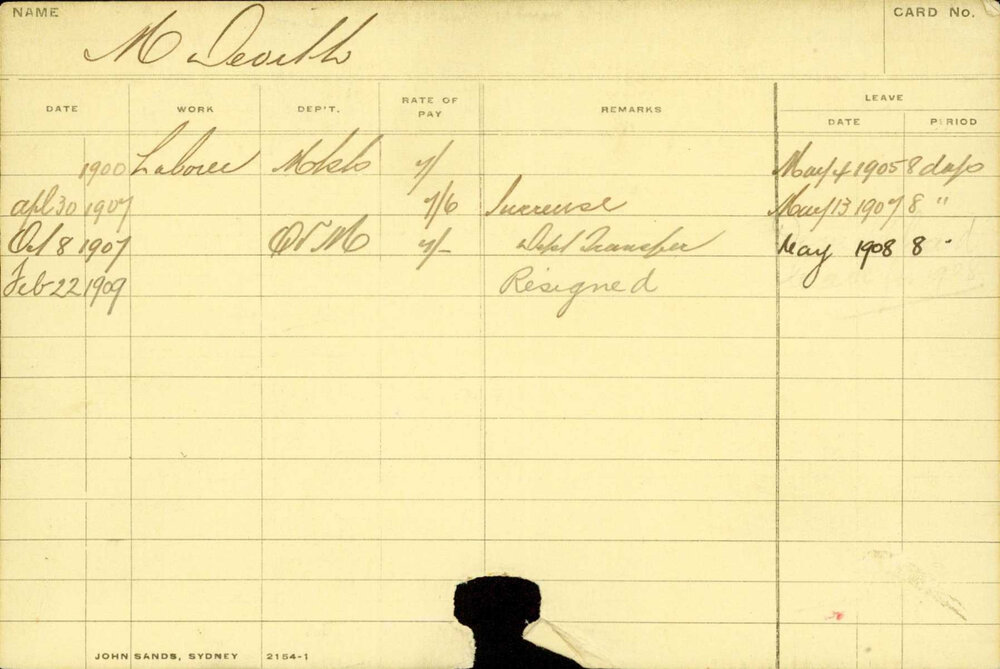 NAME CARD No.
M Devitt
DATE WORK DEP'T. RATE OF PAY REMARKS LEAVE
DATE PERIOD
1900 Laborer Mkts 7/ May 4 1905 8 days
Apl 30 1907 7/6 Increase May 13 1907 8 "
Oct 8 1907 7/- Dept Transfer May 1908 8 "
Feb 22 1909 Resigned
JOHN SANDS, SYDNEY 2154-1